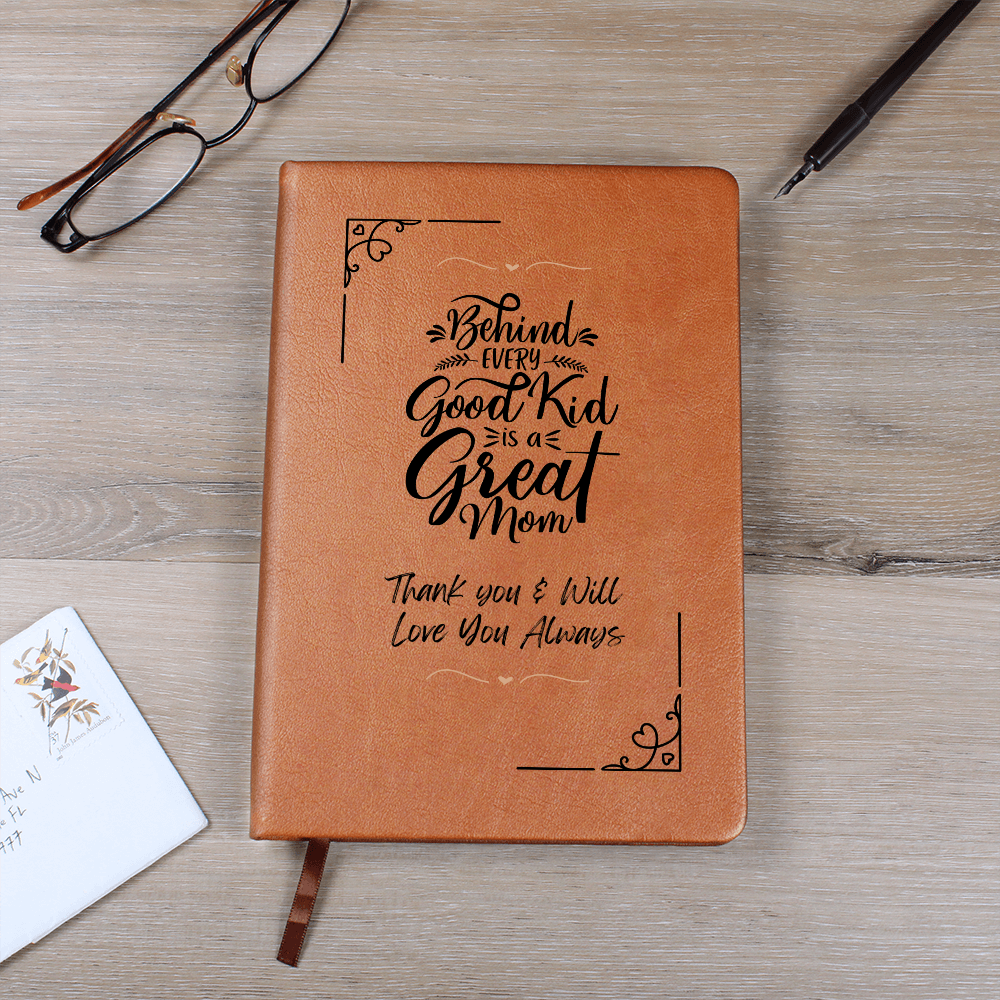 Behind
EVERY
Good Kid
is a
Great
Mom
Thank you & Will
Love You Always
John James Audubon
37
Ave N
FL
977